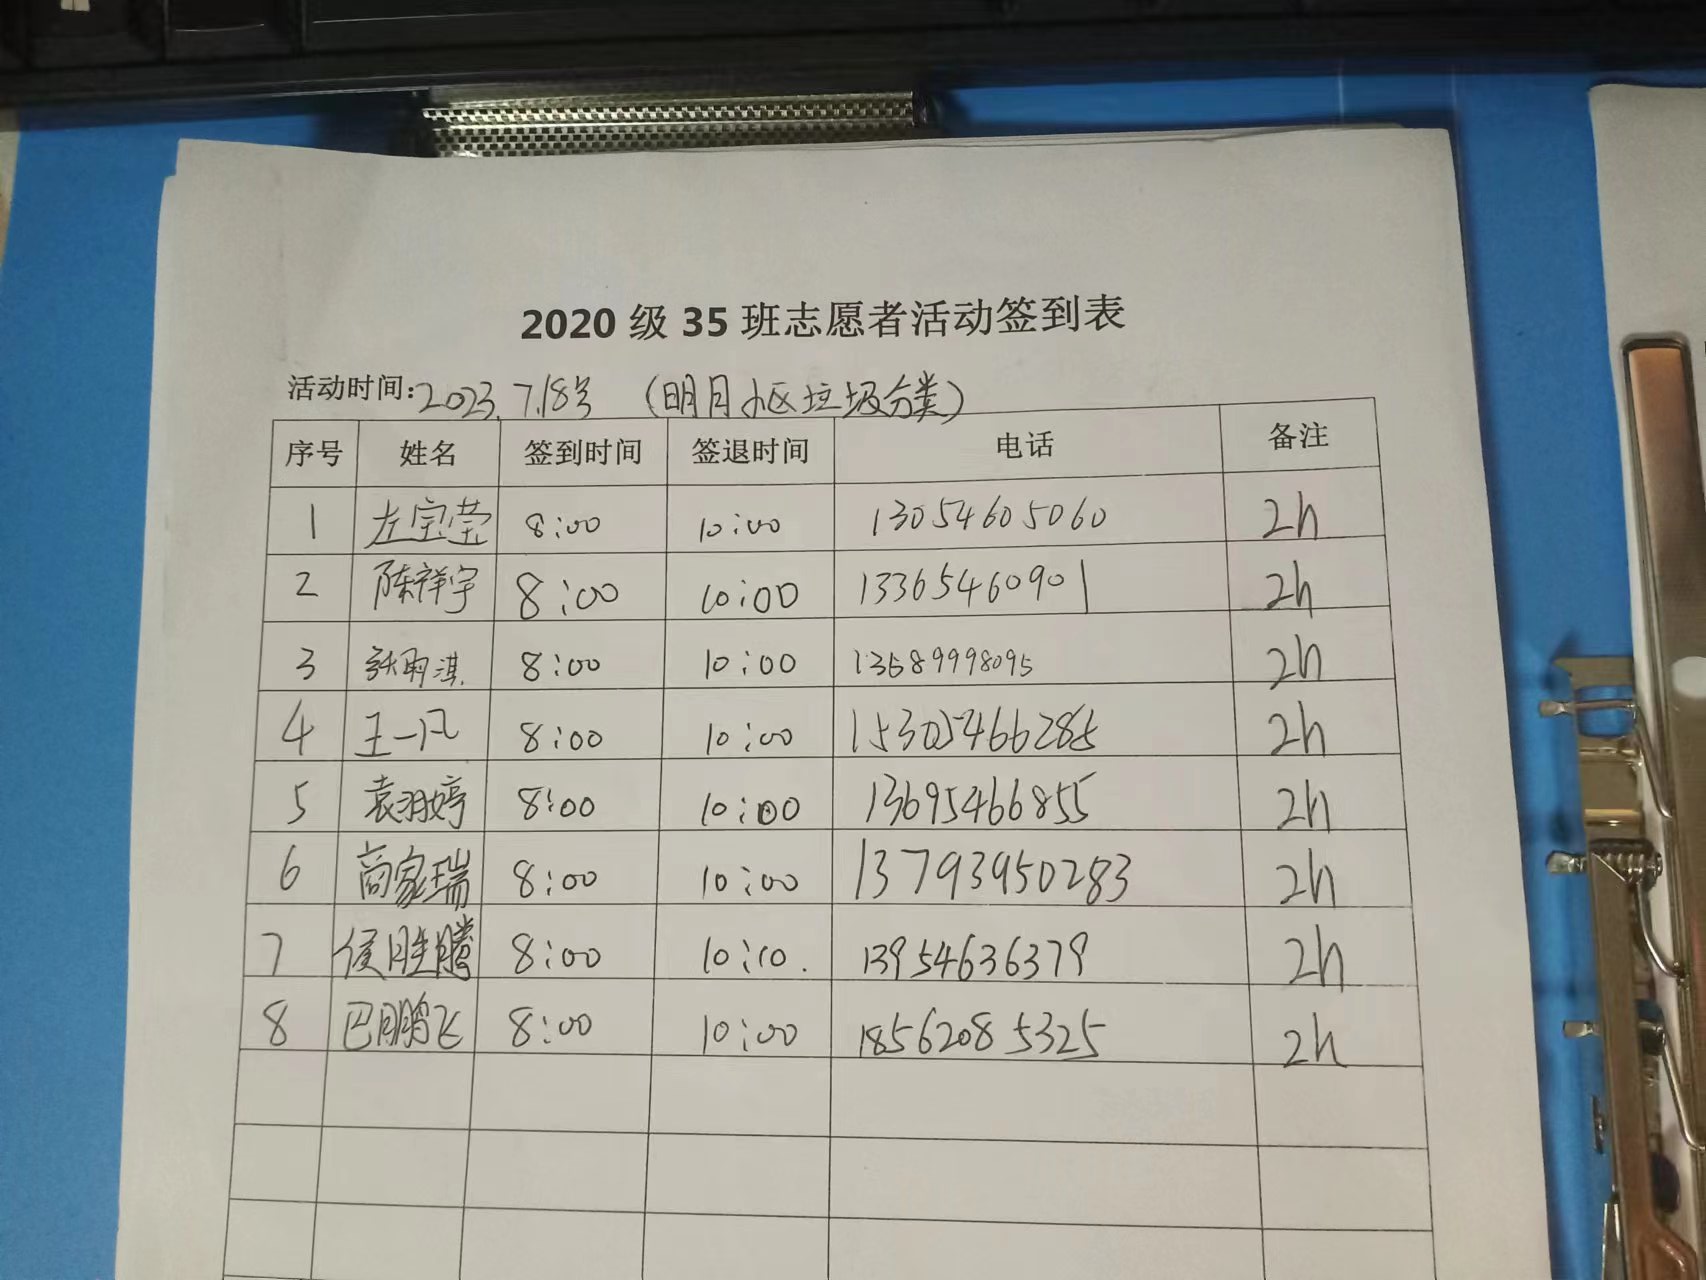 2020 级 35 班志愿者活动签到表
活动时间:2023.7.18号 (明月小区垃圾分类)
序号 姓名 签到时间 签退时间 电话 备注
1 左宝莹 8:00 10:00 13054605060 2h
2 陈祥宇 8:00 10:00 13365460901 2h
3 张雨淇 8:00 10:00 13589998095 2h
4 王一凡 8:00 10:00 15305466285 2h
5 袁羽婷 8:00 10:00 13695466855 2h
6 商家瑞 8:00 10:00 13793950283 2h
7 侯胜腾 8:00 10:10. 13954636379 2h
8 巴鹏飞 8:00 10:00 18562085325 2h